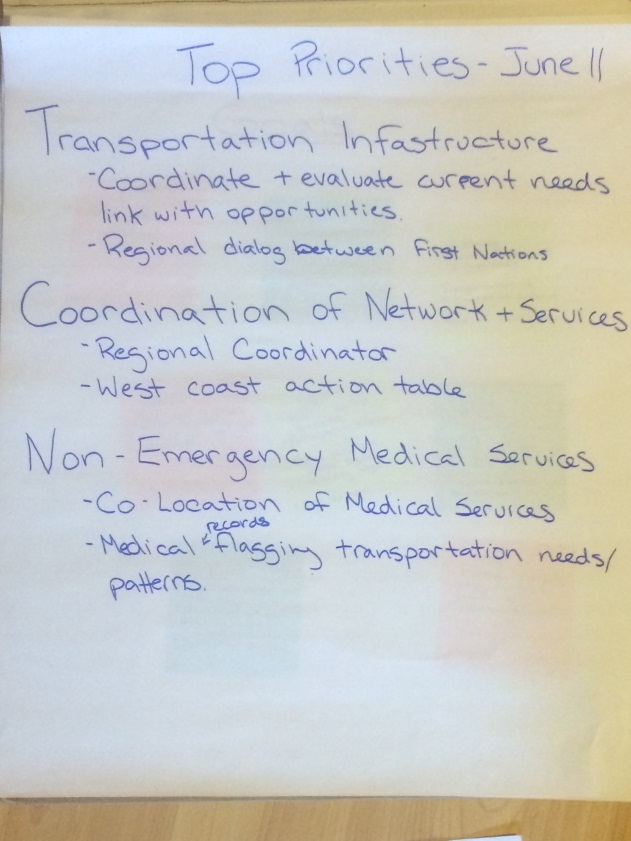 Top Priorities - June 11
Transportation Infastructure
- Coordinate + evaluate current needs
link with opportunities.
- Regional dialog between First Nations
Coordination of Network + Services
- Regional Coordinator
- West coast action table
Non-Emergency Medical Services
- Co-Location of Medical Services
records
- Medical flagging transportation needs/
patterns.